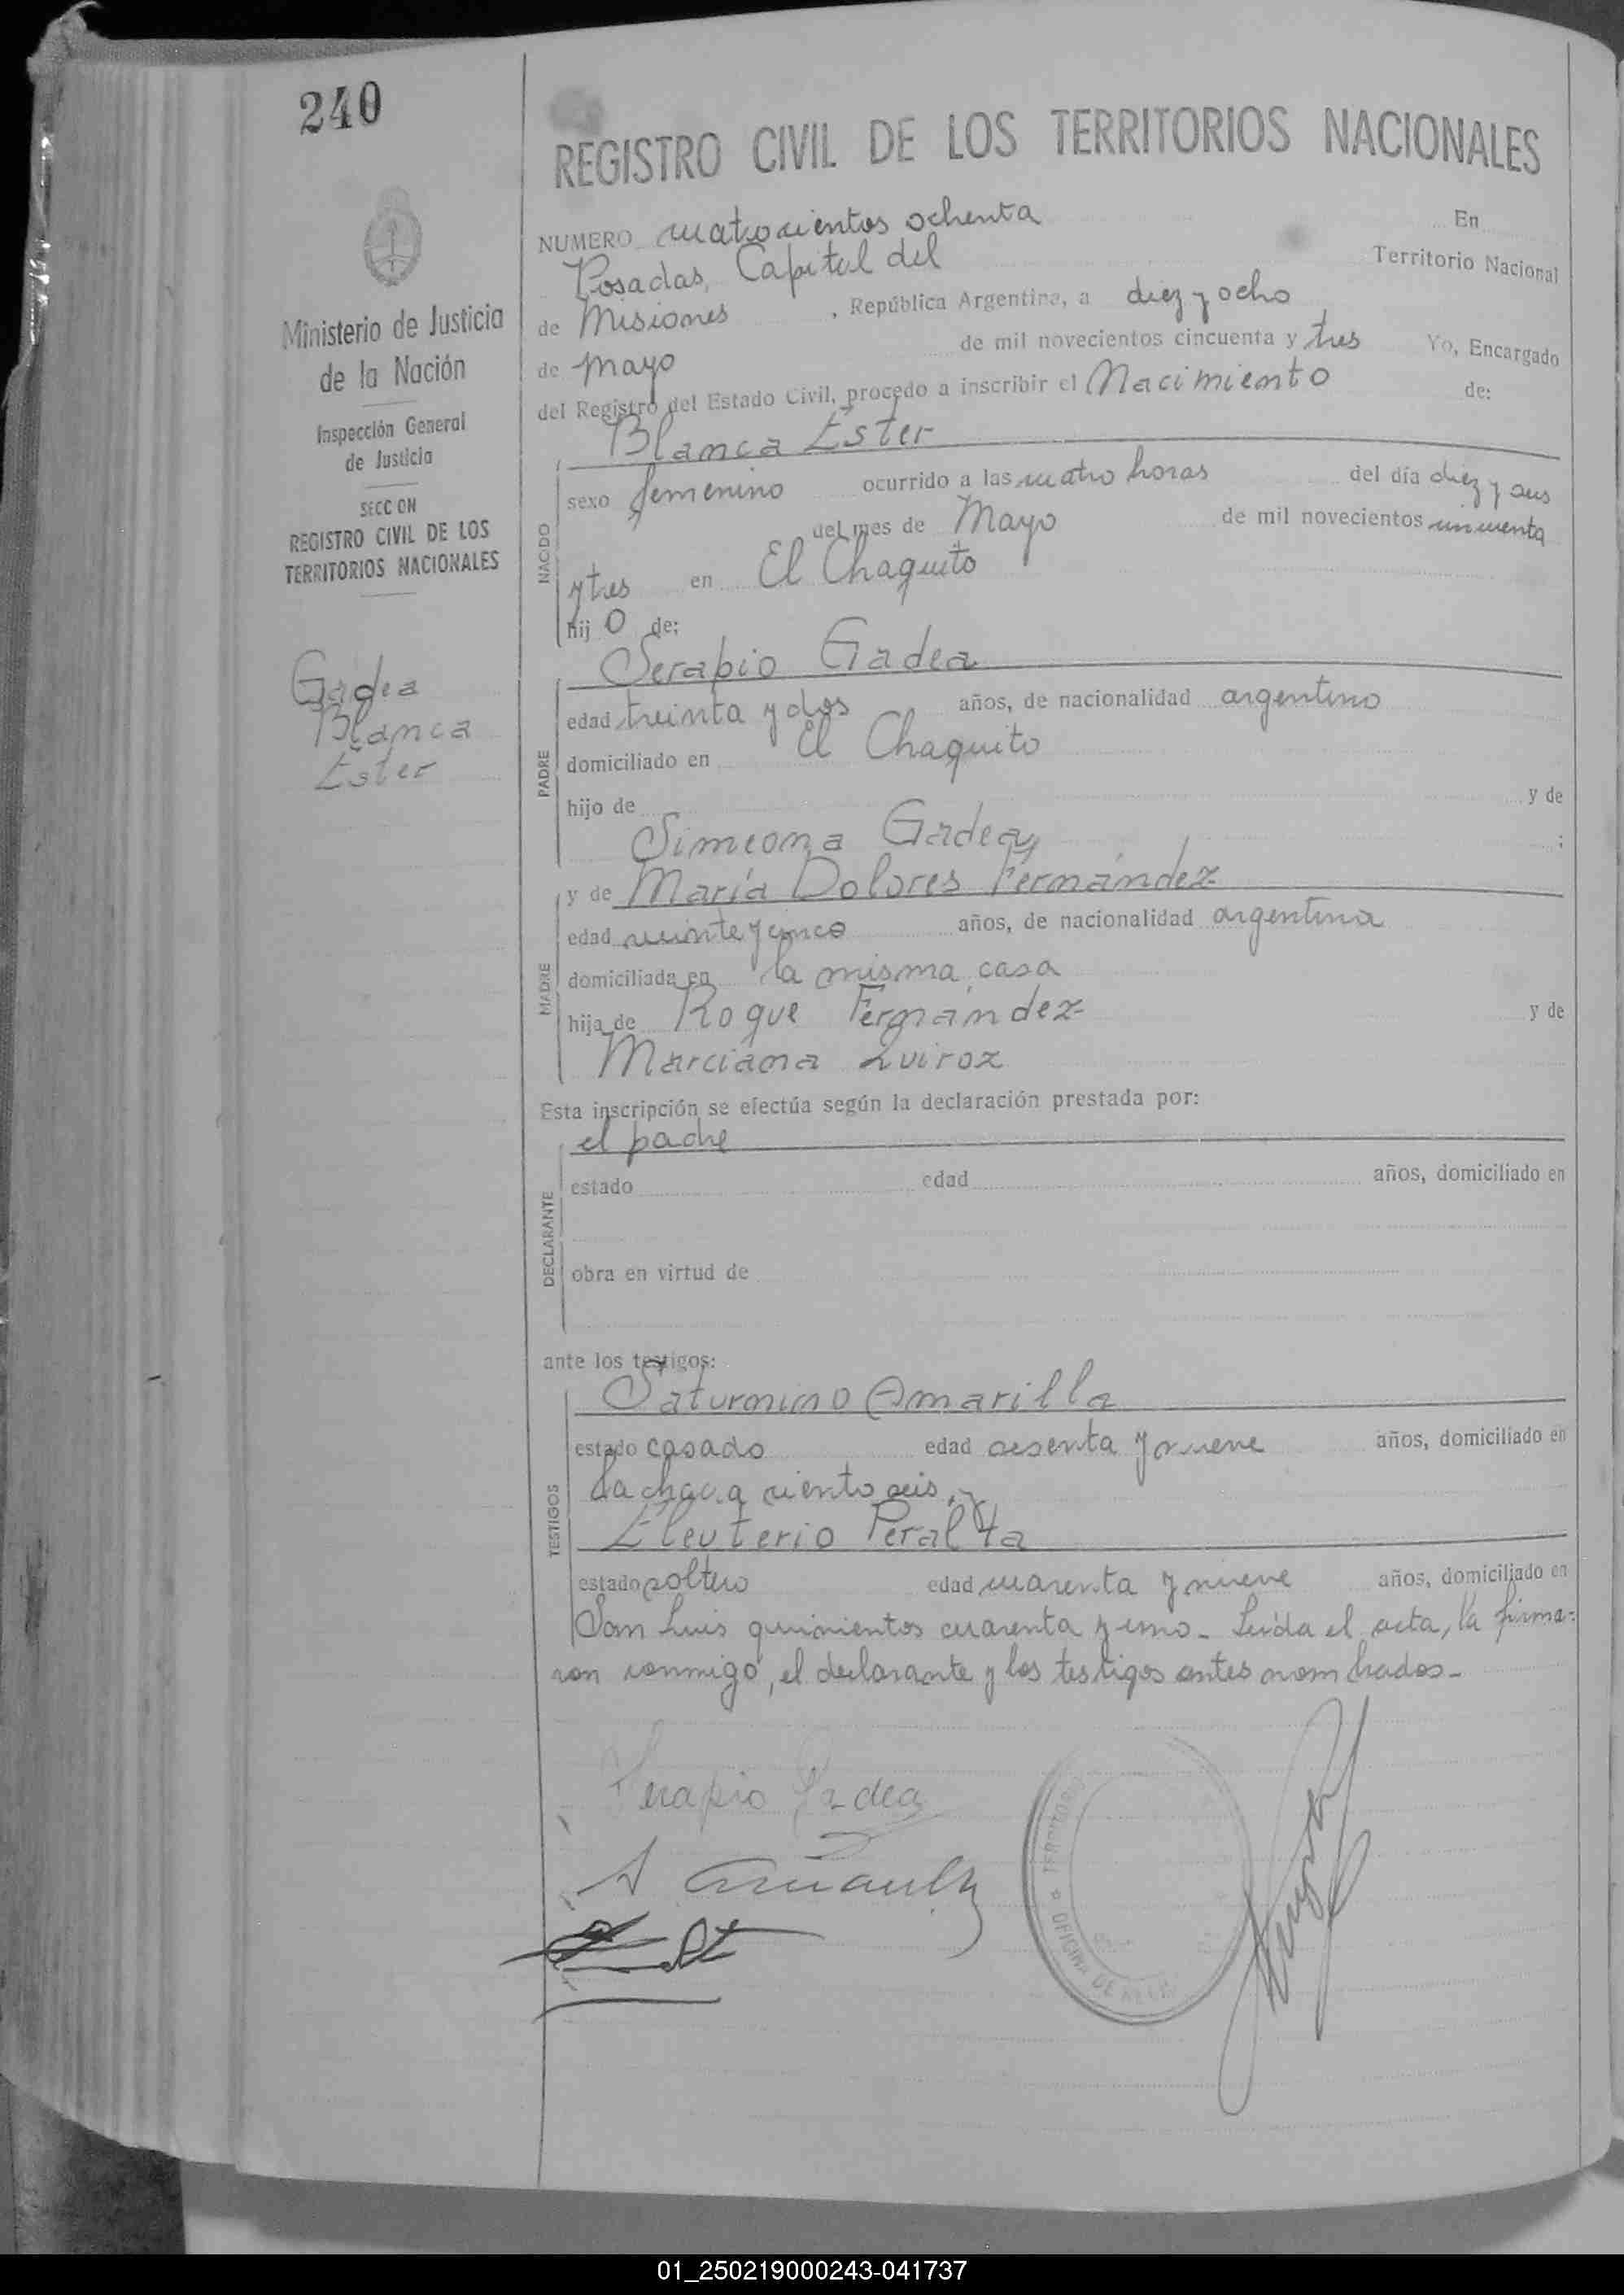 240
Ministerio de Justicia
de la Nación
Inspección General
de Justicia
SECCION
REGISTRO CIVIL DE LOS
TERRITORIOS NACIONALES
Gadea
Blanca
Ester
REGISTRO CIVIL DE LOS TERRITORIOS NACIONALES
NUMERO cuatrocientos ochenta En
Posadas, Capital del Territorio Nacional
de Misiones, República Argentina, a diez y ocho
de mayo de mil novecientos cincuenta y tres Yo, Encargado
del Registro del Estado Civil, procedo a inscribir el Nacimiento de:
Blanca Ester
NACIDO
sexo femenino ocurrido a las cuatro horas del día diez y seis
del mes de Mayo de mil novecientos cincuenta
y tres en El Chaquito
hij o de:
Serapio Gadea
PADRE
edad treinta y dos años, de nacionalidad argentino
domiciliado en El Chaquito
hijo de y de
Simeona Gadea ;
y de María Dolores Fernández
MADRE
edad veinte y cinco años, de nacionalidad argentina
domiciliada en la misma casa
hija de Roque Fernández y de
Marciana Quiroz
Esta inscripción se efectúa según la declaración prestada por:
el padre
DECLARANTE
estado edad años, domiciliado en
obra en virtud de
ante los testigos:
Saturnino Amarilla
TESTIGOS
estado casado edad sesenta y nueve años, domiciliado en
La chacra ciento seis, y
Eleuterio Peralta
estado soltero edad cuarenta y nueve años, domiciliado en
San Luis quinientos cuarenta y uno. Leída el acta, la firma=
ron conmigo, el declarante y los testigos antes nombrados.
Serapio Gadea
OFICINA DE
01_250219000243-041737